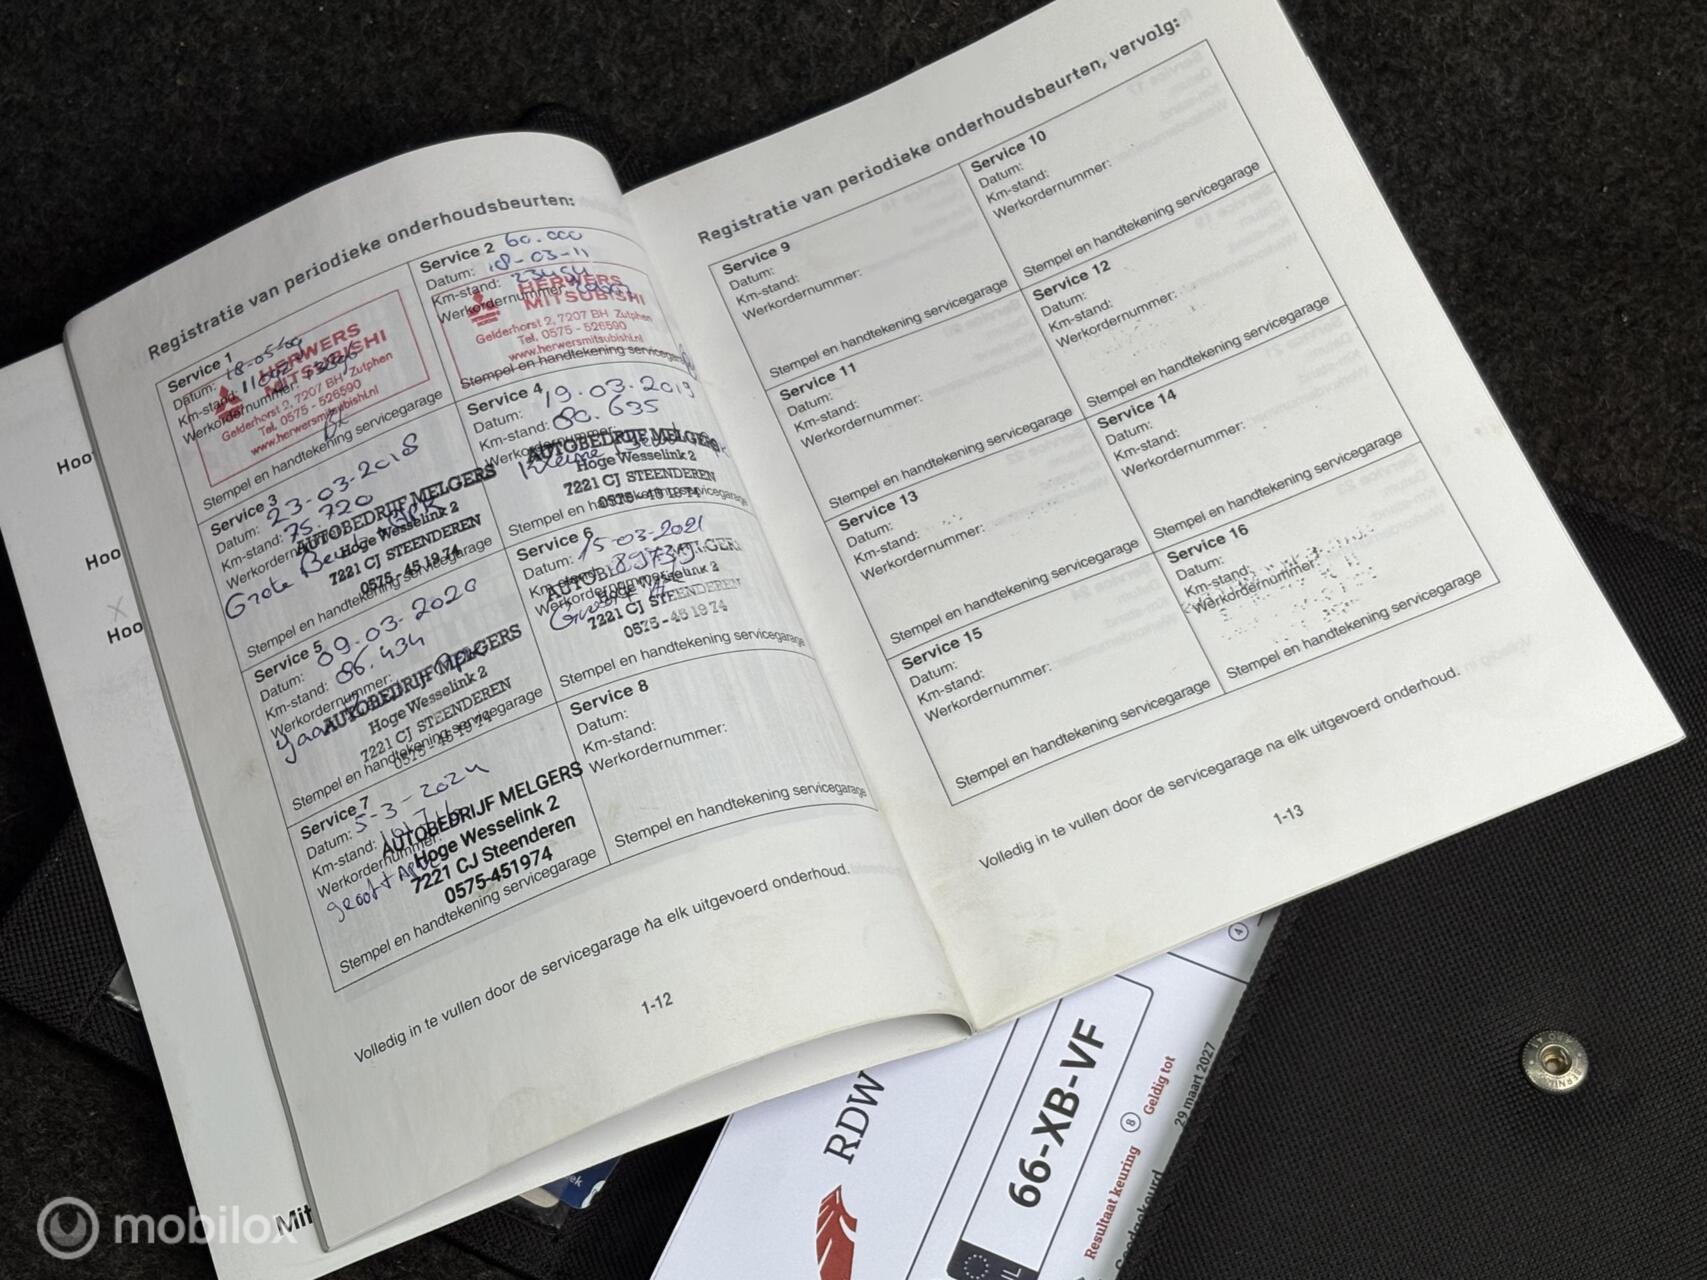 Registratie van periodieke onderhoudsbeurten:
Service 1
Datum: 18-05-09
Km-stand: 11092
Werkordernummer:
HERWERS
MITSUBISHI
Gelderhorst 2, 7207 BH Zutphen
Tel. 0575 - 526590
www.herwersmitsubishi.nl
Stempel en handtekening servicegarage
Service 2 60.000
Datum: 18-03-11
Km-stand: 23454
Werkordernummer:
HERWERS
MITSUBISHI
Gelderhorst 2, 7207 BH Zutphen
Tel. 0575 - 526590
www.herwersmitsubishi.nl
Stempel en handtekening servicegarage
Service 3
Datum: 23-03-2018
Km-stand: 75.720
Werkordernummer:
Grote Beurt + APK
AUTOBEDRIJF MELGERS
Hoge Wesselink 2
7221 CJ STEENDEREN
0575 - 45 19 74
Stempel en handtekening servicegarage
Service 4
Datum: 19.03.2019
Km-stand: 80.635
Werkordernummer:
Kleine
AUTOBEDRIJF MELGERS
Hoge Wesselink 2
7221 CJ STEENDEREN
0575 - 45 19 74
Stempel en handtekening servicegarage
Service 5
Datum: 09-03-2020
Km-stand: 86.434
Werkordernummer:
AUTOBEDRIJF MELGERS
Hoge Wesselink 2
7221 CJ STEENDEREN
0575 - 45 19 74
Stempel en handtekening servicegarage
Service 6
Datum: 15-03-2021
Km-stand:
Werkordernummer:
AUTOBEDRIJF MELGERS
Hoge Wesselink 2
7221 CJ STEENDEREN
0575 - 45 19 74
Stempel en handtekening servicegarage
Service 7
Datum: 5-3-2024
Km-stand:
Werkordernummer:
groot + APK
AUTOBEDRIJF MELGERS
Hoge Wesselink 2
7221 CJ Steenderen
0575-451974
Stempel en handtekening servicegarage
Service 8
Datum:
Km-stand:
Werkordernummer:
Stempel en handtekening servicegarage
Volledig in te vullen door de servicegarage na elk uitgevoerd onderhoud.
1-12
Registratie van periodieke onderhoudsbeurten, vervolg:
Service 9
Datum:
Km-stand:
Werkordernummer:
Stempel en handtekening servicegarage
Service 10
Datum:
Km-stand:
Werkordernummer:
Stempel en handtekening servicegarage
Service 11
Datum:
Km-stand:
Werkordernummer:
Stempel en handtekening servicegarage
Service 12
Datum:
Km-stand:
Werkordernummer:
Stempel en handtekening servicegarage
Service 13
Datum:
Km-stand:
Werkordernummer:
Stempel en handtekening servicegarage
Service 14
Datum:
Km-stand:
Werkordernummer:
Stempel en handtekening servicegarage
Service 15
Datum:
Km-stand:
Werkordernummer:
Stempel en handtekening servicegarage
Service 16
Datum:
Km-stand:
Werkordernummer:
Stempel en handtekening servicegarage
Volledig in te vullen door de servicegarage na elk uitgevoerd onderhoud.
1-13
Hoo
Hoo
Hoo
Mit
RDW
NL
66-XB-VF
Resultaat keuring
Goedgekeurd
8 Geldig tot
29 maart 2027
4
mobilox